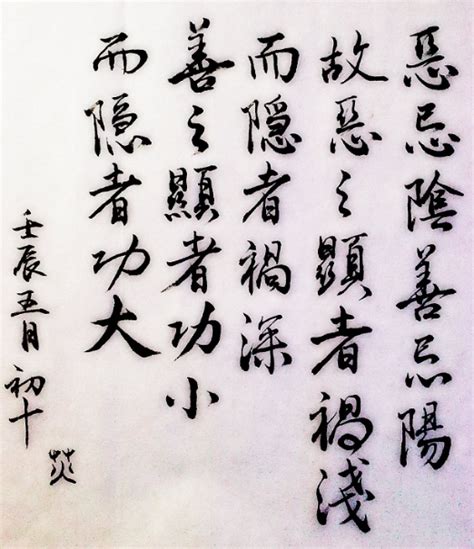 惡忌陰善忌陽
故惡之顯者禍淺
而隱者禍深
善之顯者功小
而隱者功大
壬辰五月初十